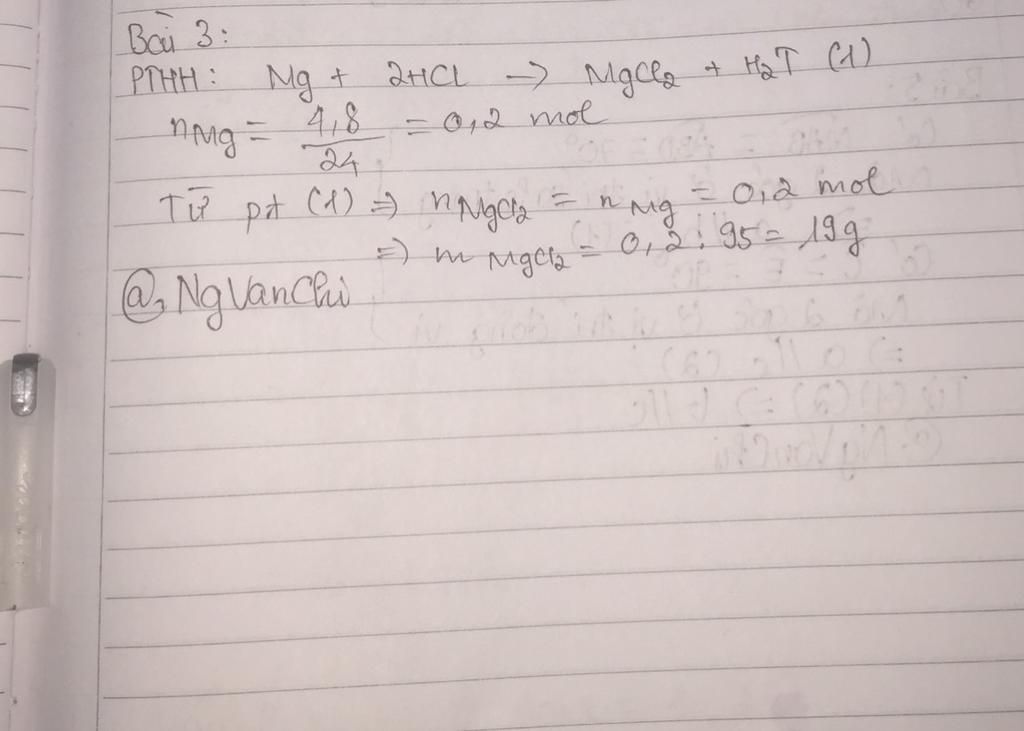 Bài 3:
PTHH: Mg + 2HCl -> MgCl₂ + H₂↑ (1)
nMg = 4,8/24 = 0,2 mol
Từ pt (1) => nMgCl₂ = nMg = 0,2 mol
=> m MgCl₂ = 0,2 : 95 = 19g
@, NgVanChi